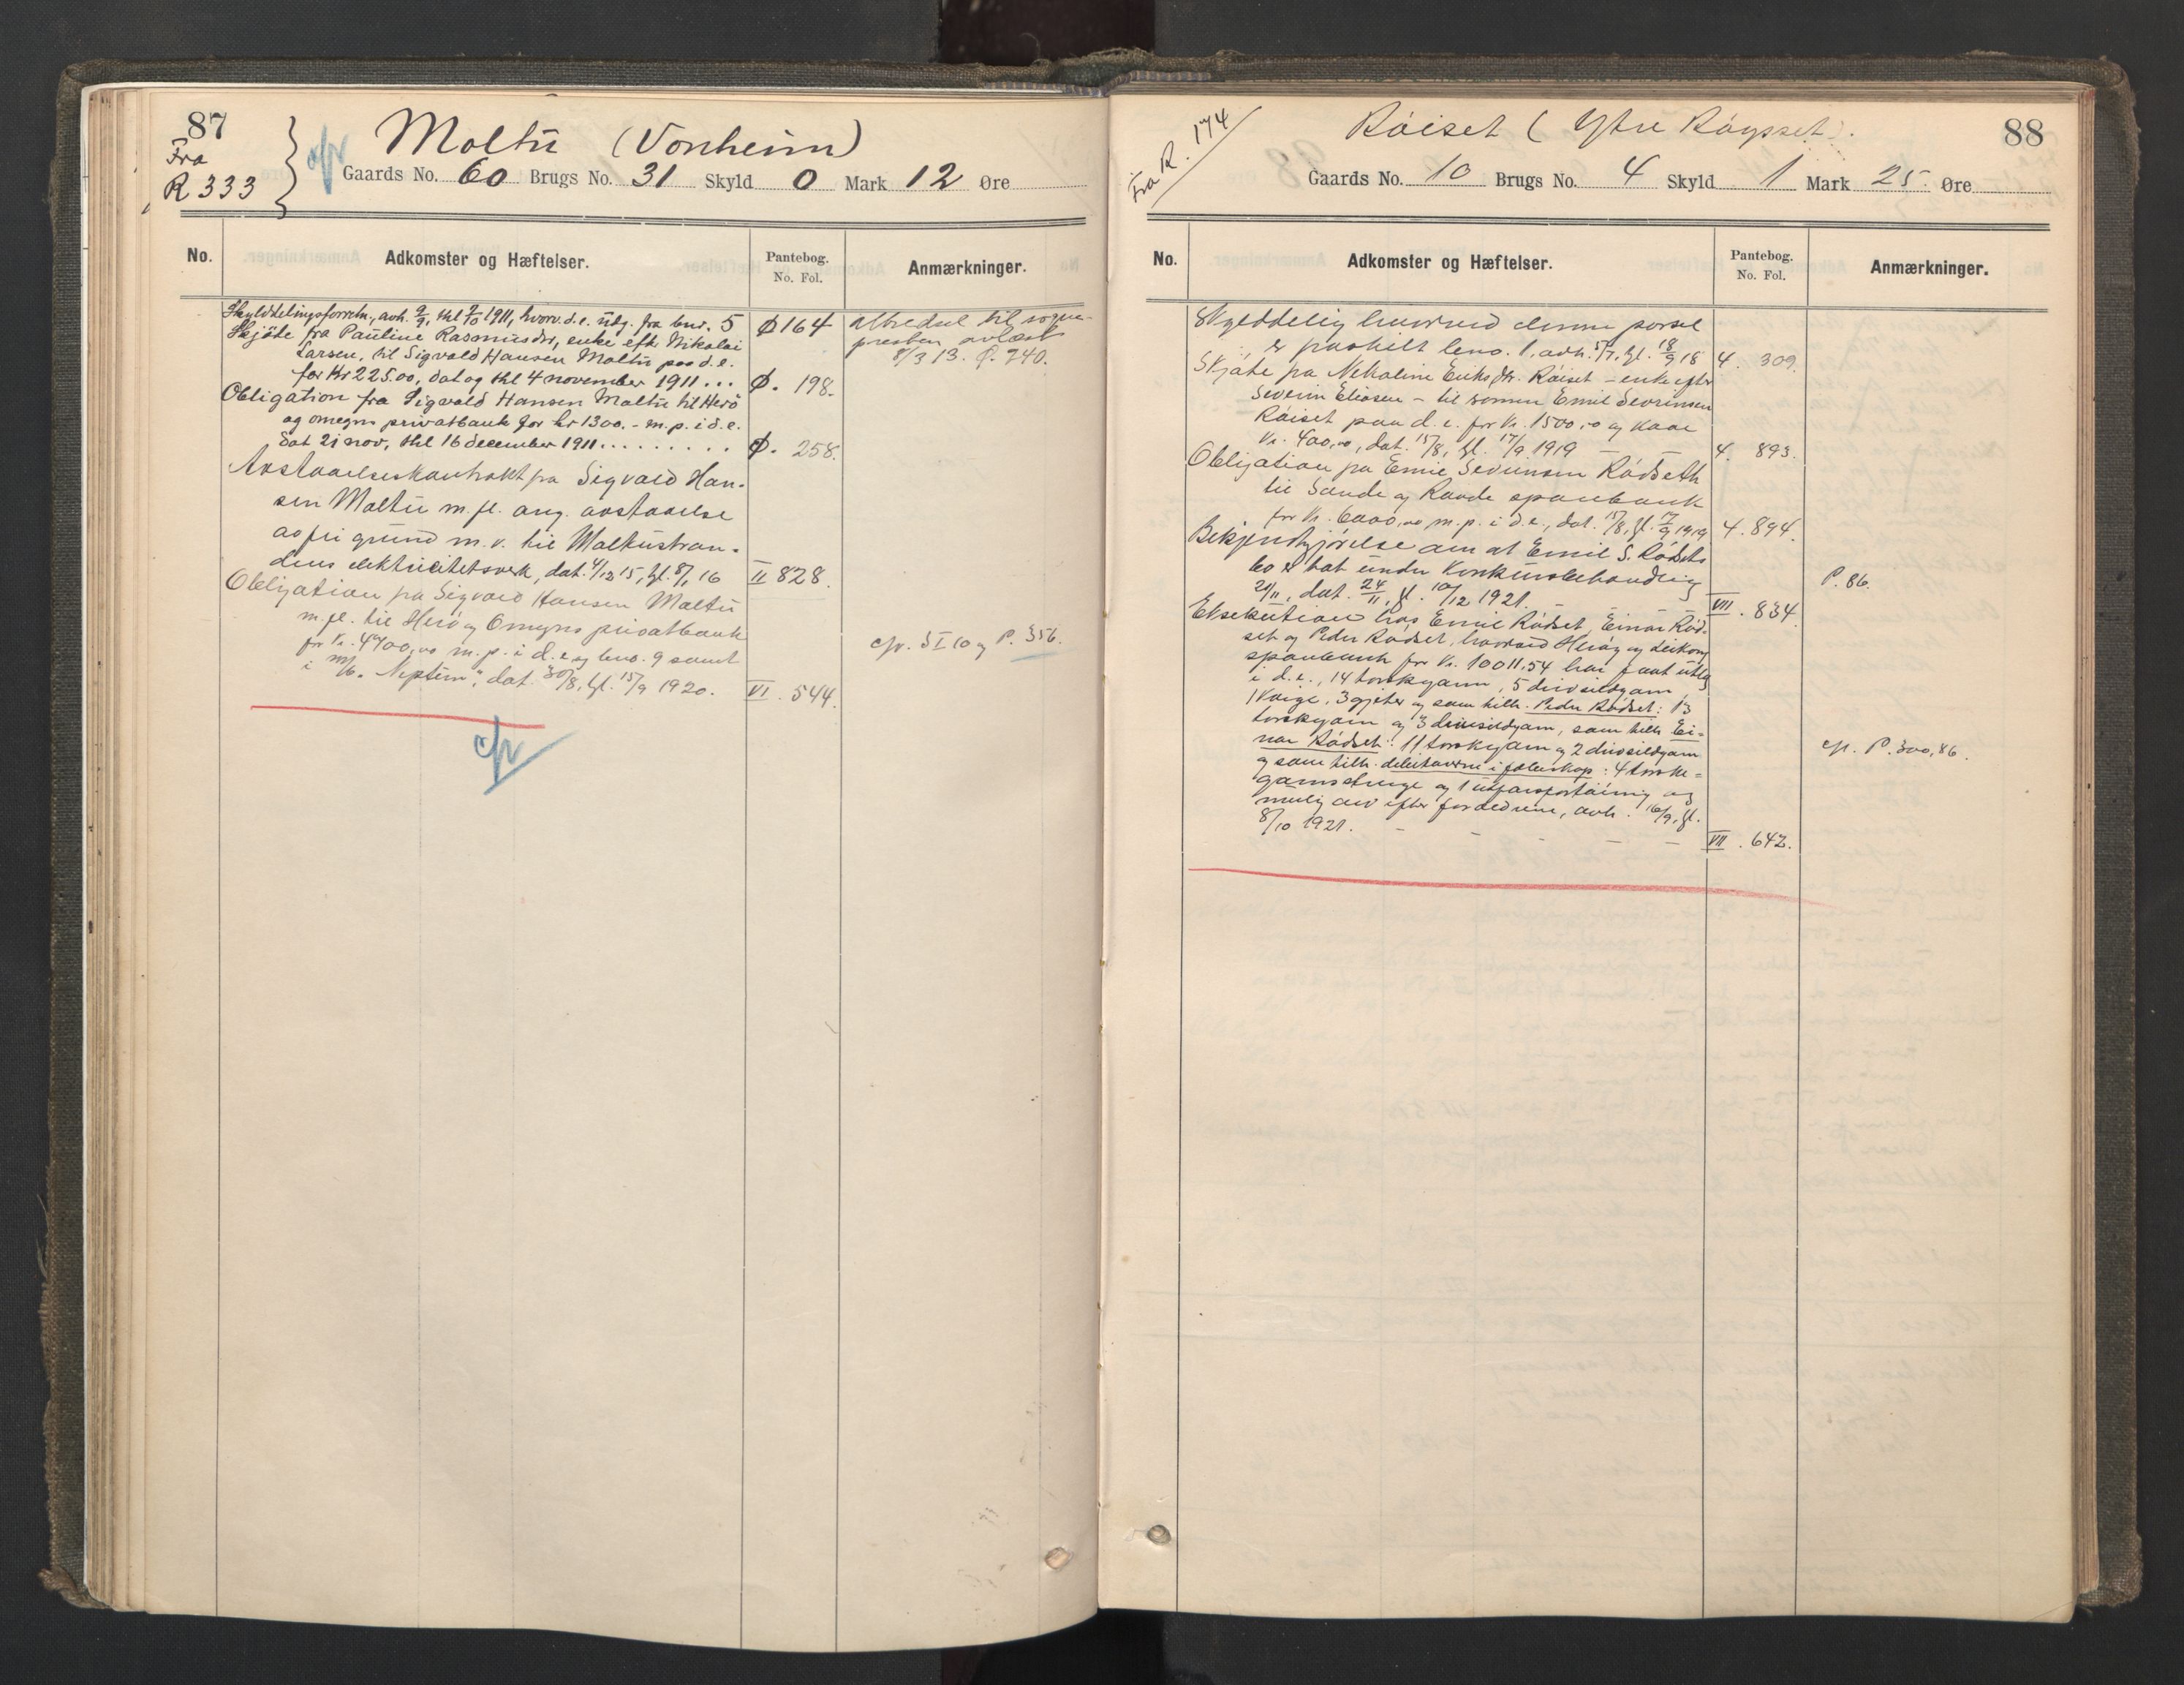 87
Fra
R 333
cfr
Moltu (Vonheim)
Gaards No. 60 Brugs No. 31 Skyld 0 Mark 12 Øre
No. Adkomster og Hæftelser. Pantebog. No. Fol. Anmærkninger.
Skylddelingsforretn., avh. 9/9, thl 9/10 1911, hvorv. d. e. udg. fra bnr. 5 Φ 164
Skjöte fra Pauline Rasmusdr, enke eft. Nikolai
Larsen, til Sigvald Hansen Moltu paa d. e.
for Kr 225.00, dat og thl 4 november 1911 ... Φ. 198.
Obligation fra Sigvald Hansen Moltu til Herö
og omegns privatbank for kr 1300. - m. p. i d. e.
dat 21 nov, thl 16 december 1911 . . . . . . . . Φ. 258.
Avstaaelseskontrakt fra Sigvald Han-
sen Moltu m. fl. ang. avstaaelse
av fri grund m. v. til Moltustran-
dens elektricitetsverk, dat. 4/12 15, tgl. 8/1 16 II 828.
Obligation fra Sigvald Hansen Moltu
m. fl. til Herö og Omegns privatbank
for Kr. 4700,00 m. p. i d. e. og bno. 9 samt
i m/b. "Neptun", dat. 30/8, tgl. 15/9 1920. VI. 544.
til sogne-
presten avlæst
8/3 13. Φ. 740.
cfr. S I 10 og P. 356.
cfr
88
Fra R. 174
Röiset (Ytre Röysset).
Gaards No. 10 Brugs No. 4 Skyld 1 Mark 25 Øre
No. Adkomster og Hæftelser. Pantebog. No. Fol. Anmærkninger.
Skylddeling hvorved denne parsel
er fraskilt bno. 1, avh. 5/7, tgl. 18/9 18 4. 309.
Skjöte fra Nikoline Eriksdtr. Röiset - enke efter
Severin Eliasen - til sönnen Emil Severinsen
Röiset paa d. e. for Kr. 1500,00 og kaar
Kr. 400,00, dat. 15/8, tgl. 17/9 1919 - - 4. 893.
Obligation fra Emil Severinsen Rödseth
til Sande og Rovde sparebank
for Kr. 6000,00 m. p. i d. e., dat. 15/8, tgl. 17/9 1919 4. 894.
Bekjendtgjörelse om at Emil S. Rödsets
bo er tat under Konkursbehandling
21/11, dat. 24/11, tgl. 10/12 1921. - - VII. 834.
P. 86.
Eksekution hos Emil Rödset, Einar Röd-
set og Peder Rödset, hvorved Heröy og Leikong
sparebank for Kr. 10011,54 har faat utlæg
i d. e., 14 torskgarn, 5 drivsildgarn,
1 Kvige, 3 gjeter og som tilh. Peder Rödset: 13
torskgarn og 3 drivsildgarn, som tilh. Ei-
nar Rödset: 11 torskgarn og 2 drivsildgarn
og som tilh. debitorerne i fælleskap: 4 torske-
garnslenge og
mulig arv efter forældrene, avh. 16/9, tgl.
8/10 1921. - - - - - VII. 642.
cfr. P. 300, 86.